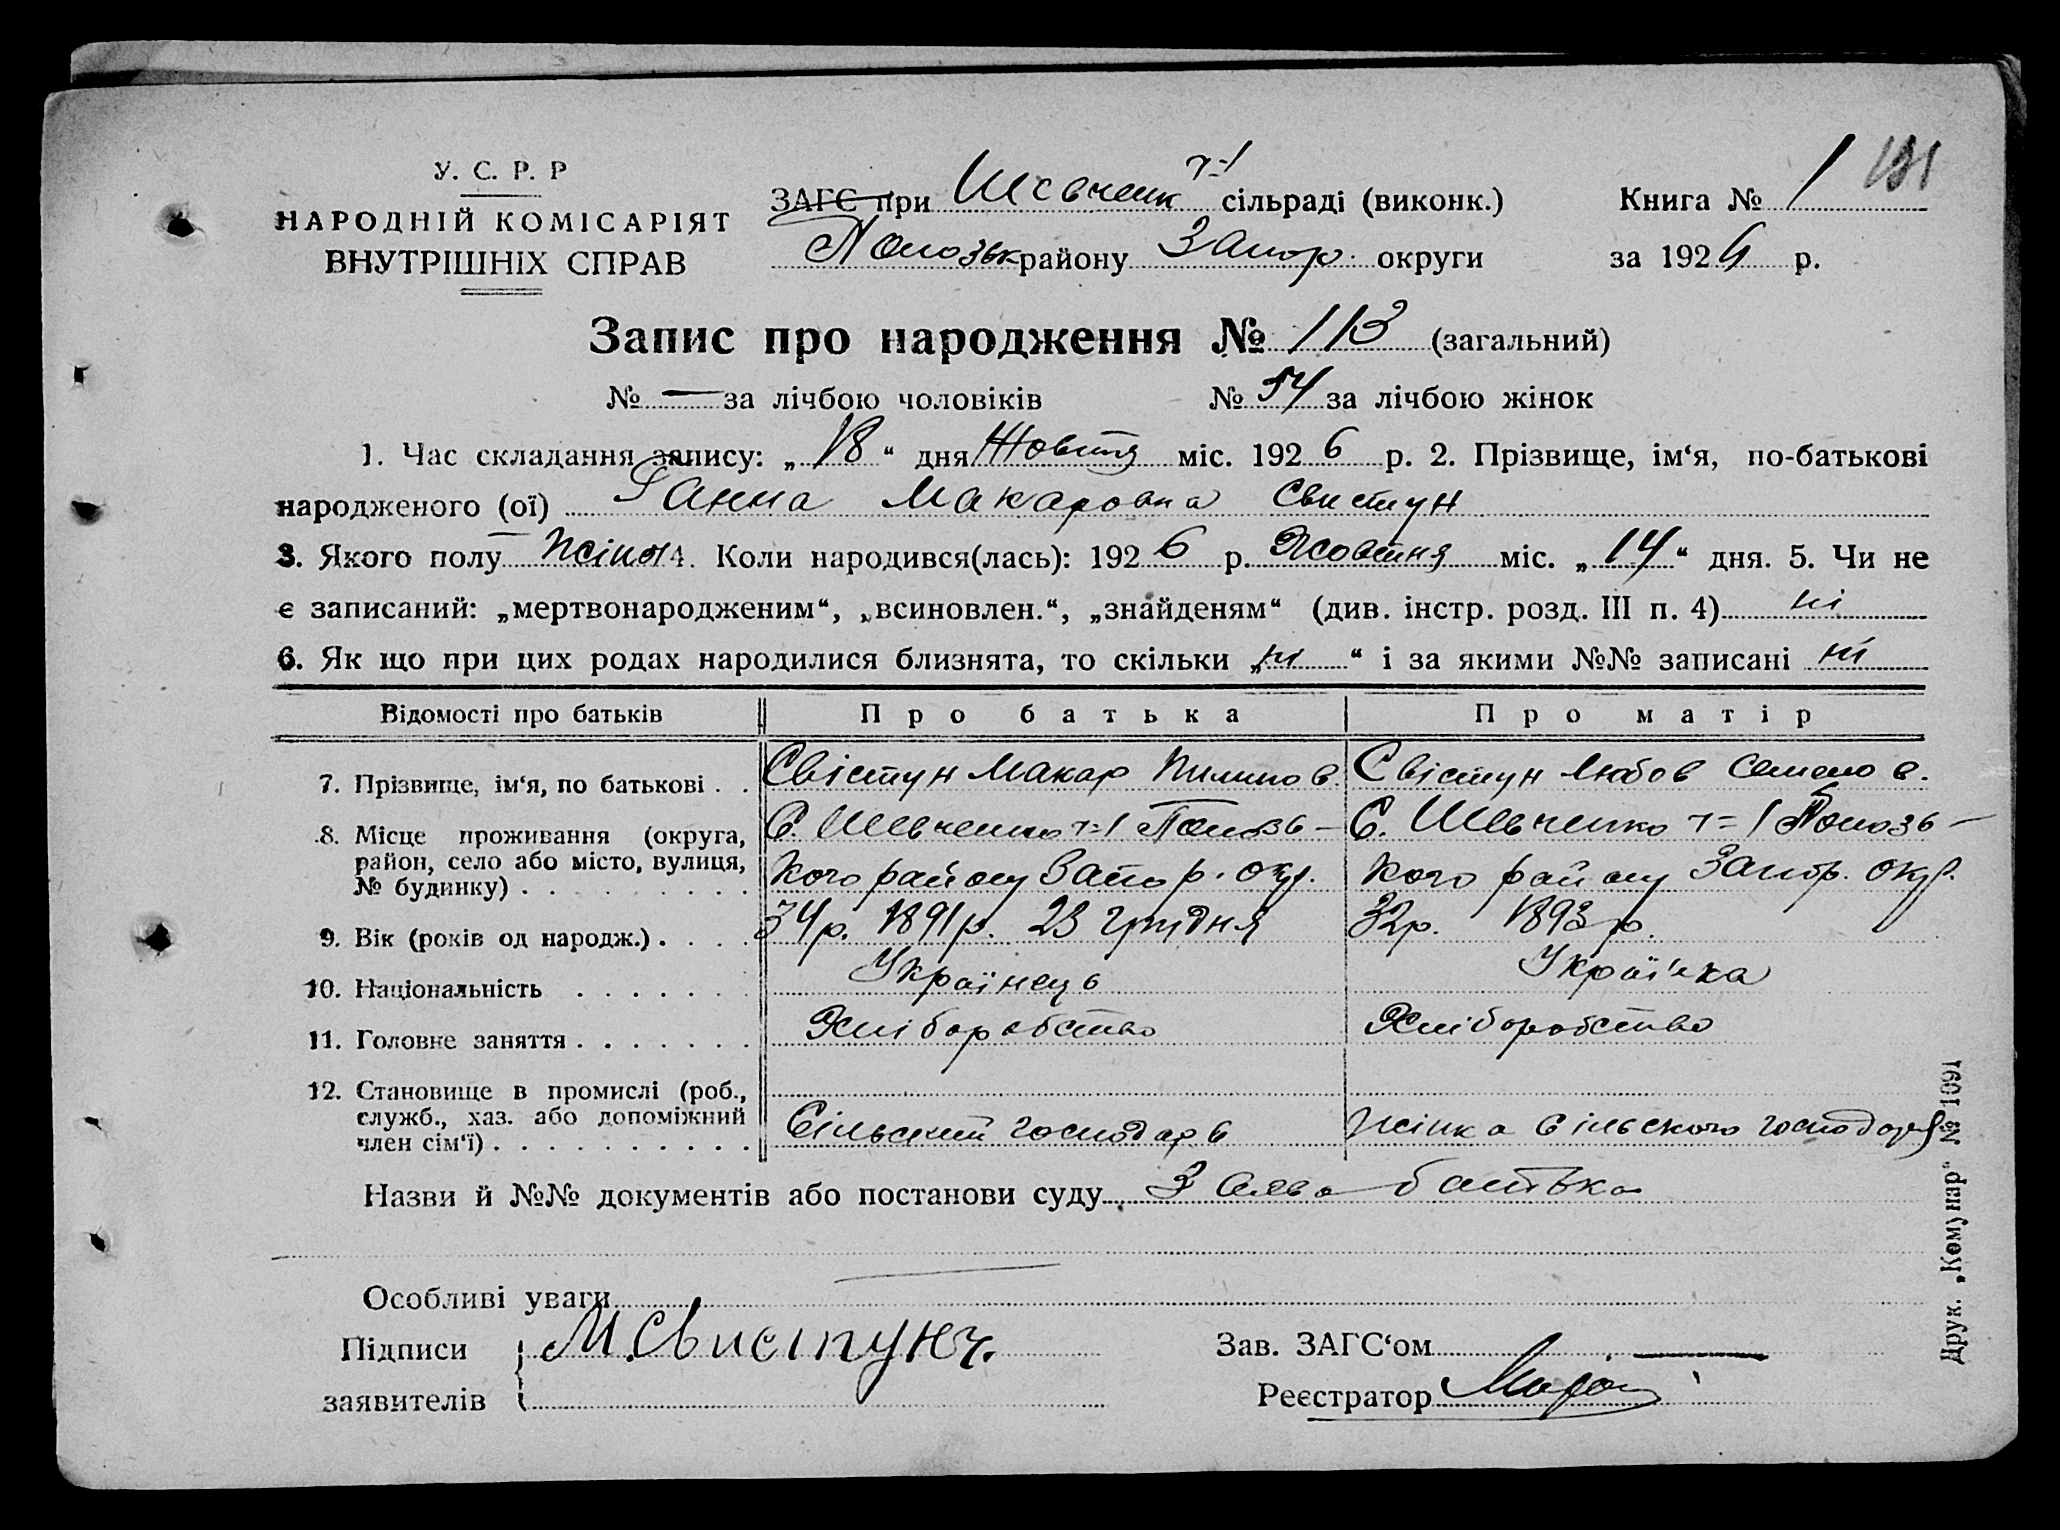 У. С. Р. Р
НАРОДНІЙ КОМІСАРІЯТ
ВНУТРІШНІХ СПРАВ
ЗАГС при Шевченк ч-1 сільраді (виконк.)
Полозьк району Запор. округи
Книга № 1 191
за 1926 р.
Запис про народження № 113 (загальний)
№ — за лічбою чоловіків № 54 за лічбою жінок
1. Час складання запису: „18“ дня Жовтня міс. 1926 р. 2. Прізвище, ім‘я, по-батькові
народженого (ої) Ганна Макаровна Свистун
3. Якого полу жіноч 4. Коли народився(лась): 1926 р. Жовтня міс. „14“ дня. 5. Чи не
є записаний: „мертвонародженим“, „всиновлен.“, „знайденям“ (див. інстр. розд. III п. 4) ні
6. Як що при цих родах народилися близнята, то скільки „ні“ і за якими №№ записані ні
Відомості про батьків Про батька Про матір
7. Прізвище, ім‘я, по батькові . . Свістун Макар Пилипов. Свістун Любов Семенов.
8. Місце проживання (округа, С. Шевченко ч-1 Полозь- С. Шевченко ч-1 Полозь-
район, село або місто, вулиця,
№ будинку) . . . . . . . . . кого району Запор. окр. кого району Запор. окр.
9. Вік (років од народж.) . . . . 34р. 1891р. 23 грудня 32р. 1893р.
10. Національність . . . . . . . Українець Українка
11. Головне заняття . . . . . . . Хліборобство Хліборобство
12. Становище в промислі (роб.,
служб., хаз. або допоміжний
член сім‘ї) . . . . . . . . . . Сільський господарь Жінка сільского господаря
Назви й №№ документів або постанови суду З слов батька
Особливі уваги
Підписи М.Свистунъ.
заявителів
Зав. ЗАГС‘ом —
Реєстратор
Друк. „Комунар“ № 1091